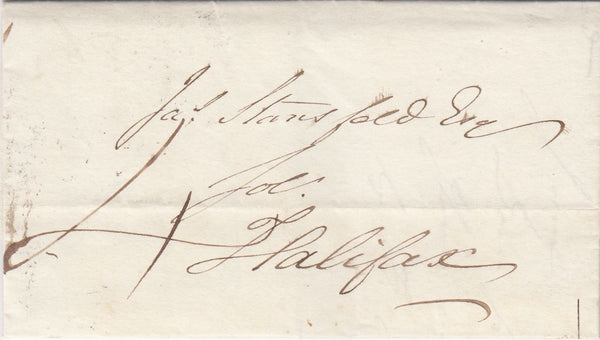 Jas. Stansfeld Esq
Sol:
Halifax